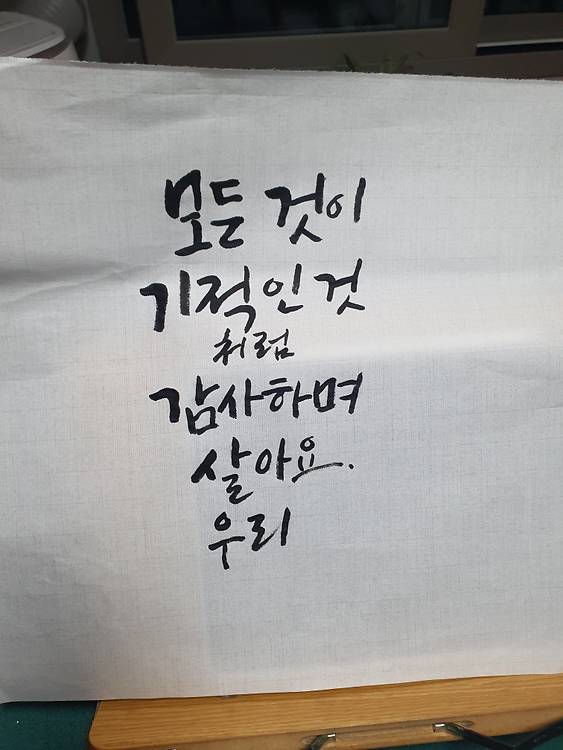 모든 것이
기적인 것
처럼
감사하며
살아요.
우리